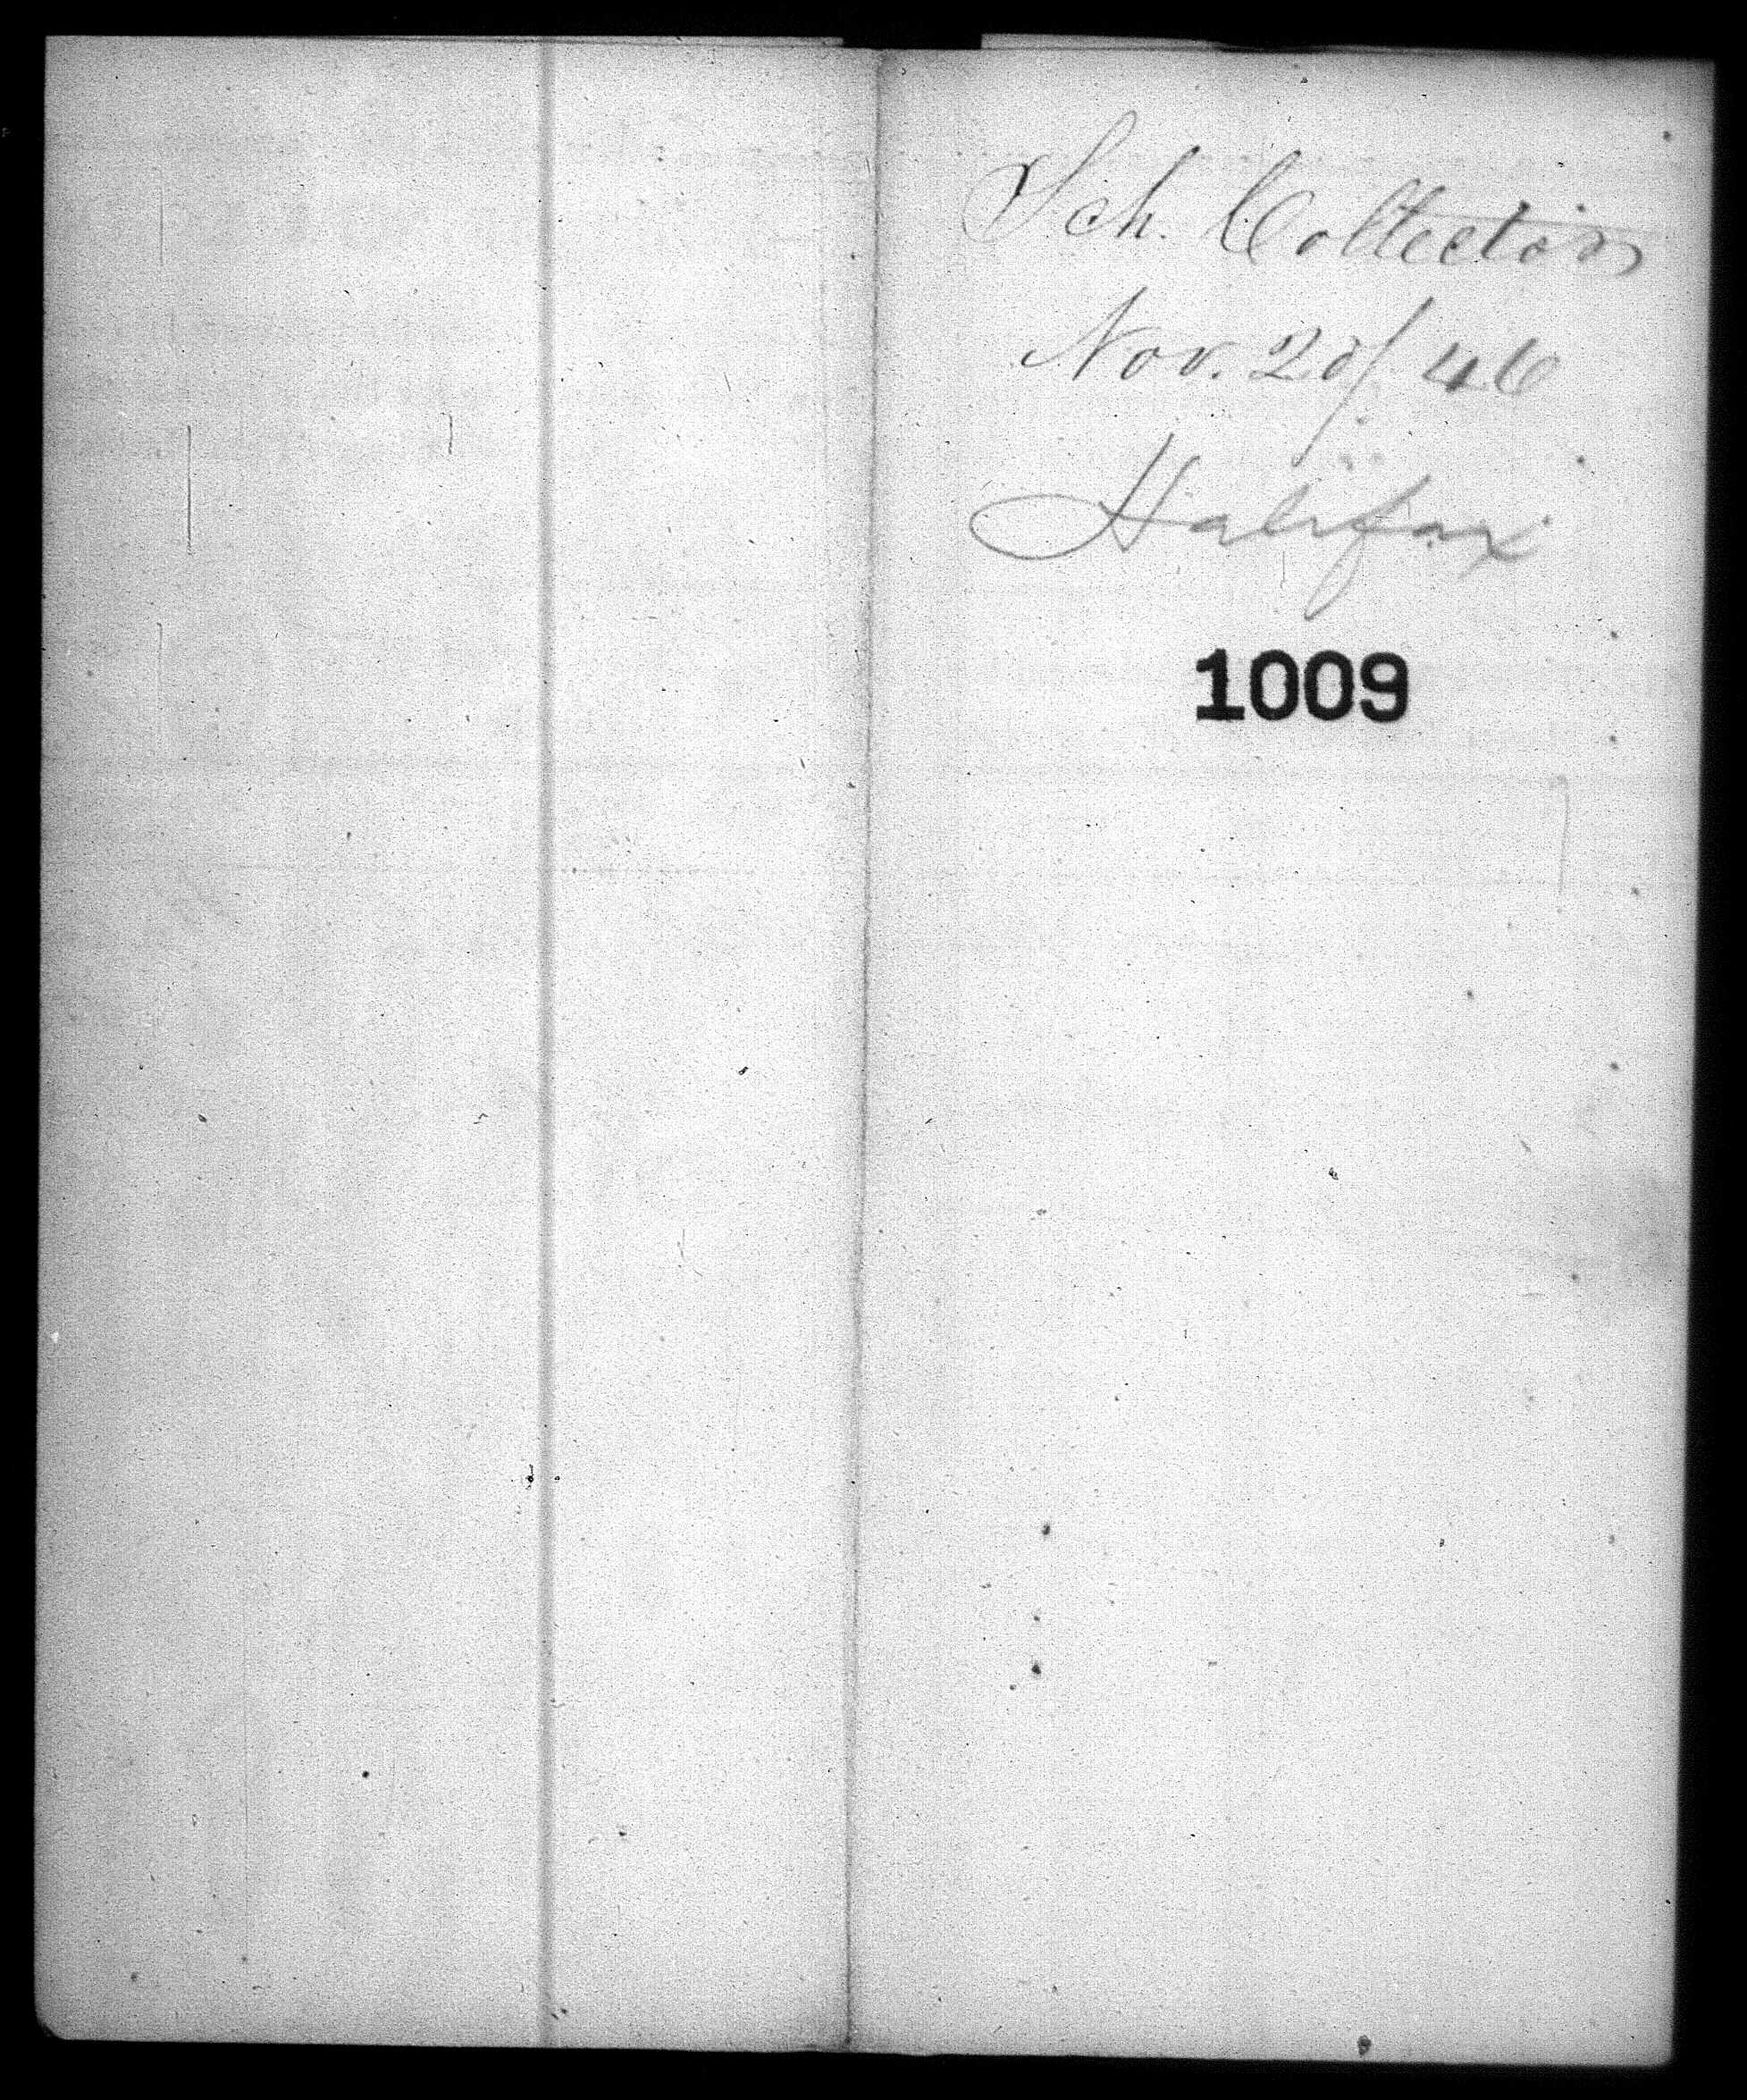 Sch. Collector
Nov. 20/46
Halifax
1009